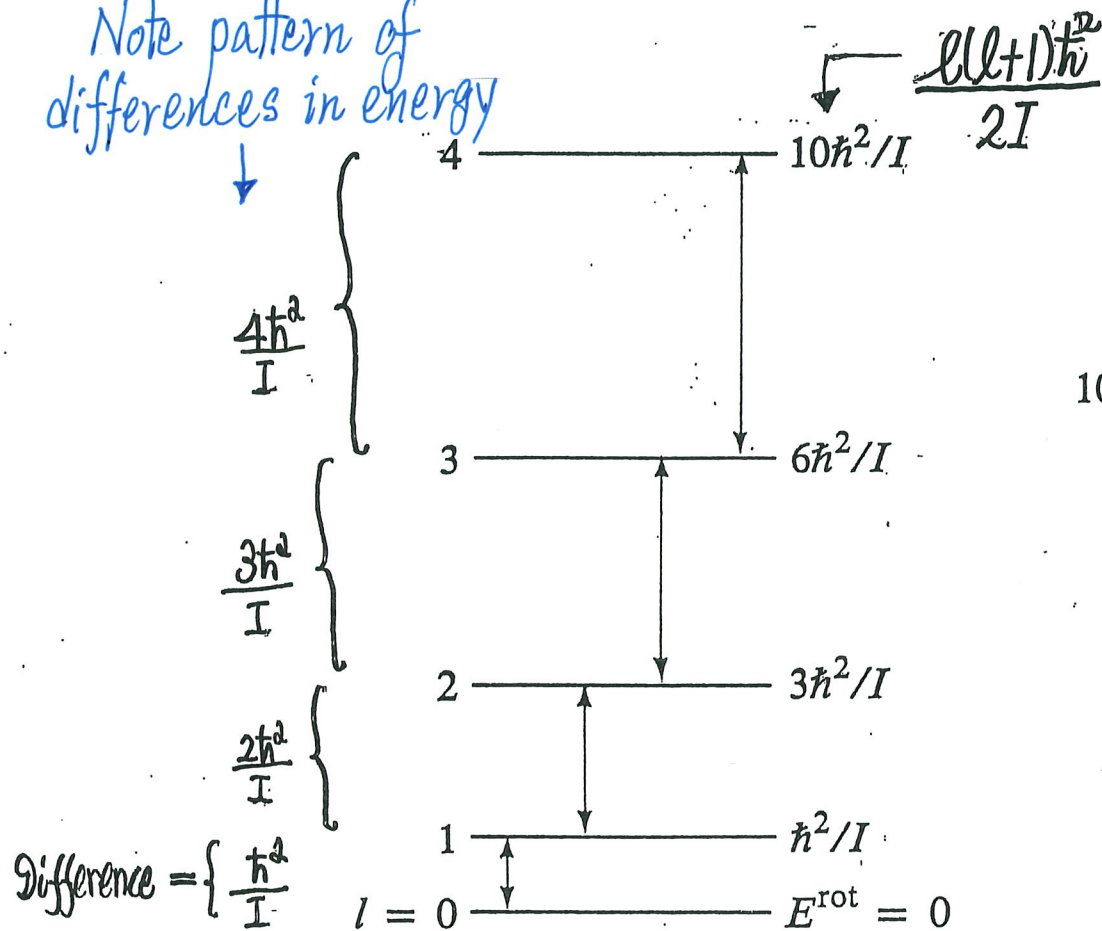 Note pattern of
differences in energy
ℓ(ℓ+1)ħ²
2I
4
10ħ²/I
4ħ²
I
10
3
6ħ²/I
3ħ²
I
2
3ħ²/I
2ħ²
I
1
ħ²/I
Difference = { ħ²
I
l = 0
E^rot = 0